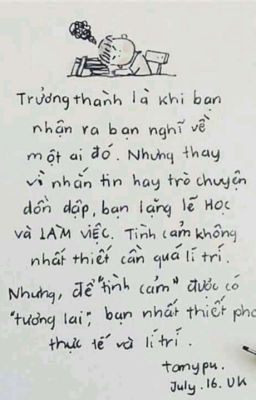 Trưởng thành là khi bạn
nhận ra bạn nghĩ về
một ai đó. Nhưng thay
vì nhắn tin hay trò chuyện
dồn dập, bạn lặng lẽ HỌC
và LÀM VIỆC. Tình cảm không
nhất thiết cần quá lí trí.
Nhưng, để "tình cảm" được có
"tương lai", bạn nhất thiết phả
thực tế và lí trí.
tamypu.
July. 16. UK